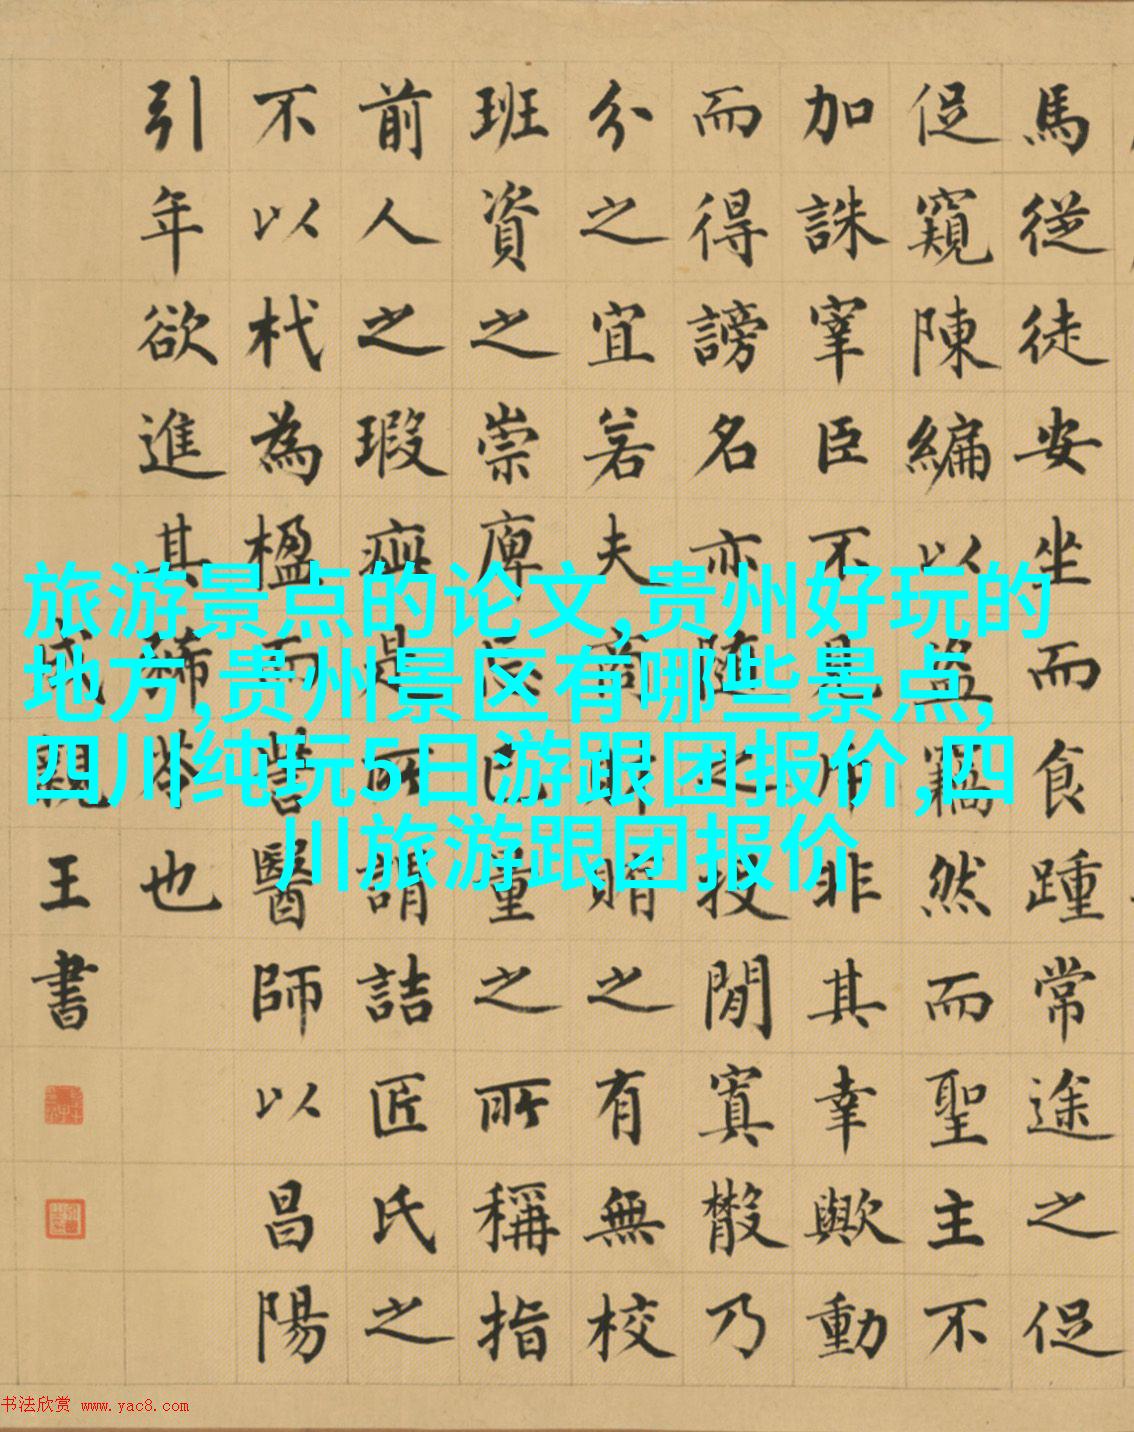 馬從徒安坐而食踵常途之促
促窺陳編以盜竊然而聖主不
加誅宰臣不見斥非其幸歟動
而得謗名亦隨之投閒寘散乃
分之宜若夫商財賄之有無校
班資之崇庳忘己量之所稱指
前人之瑕疵是所謂詰匠氏之
不以杙為楹而訾醫師以昌陽
引年欲進其豨苓也
成親王書
旅游景点的论文,贵州好玩的
地方,贵州景区有哪些景点,
四川纯玩5日游跟团报价,四
川旅游跟团报价
书法欣赏 www.yac8.com